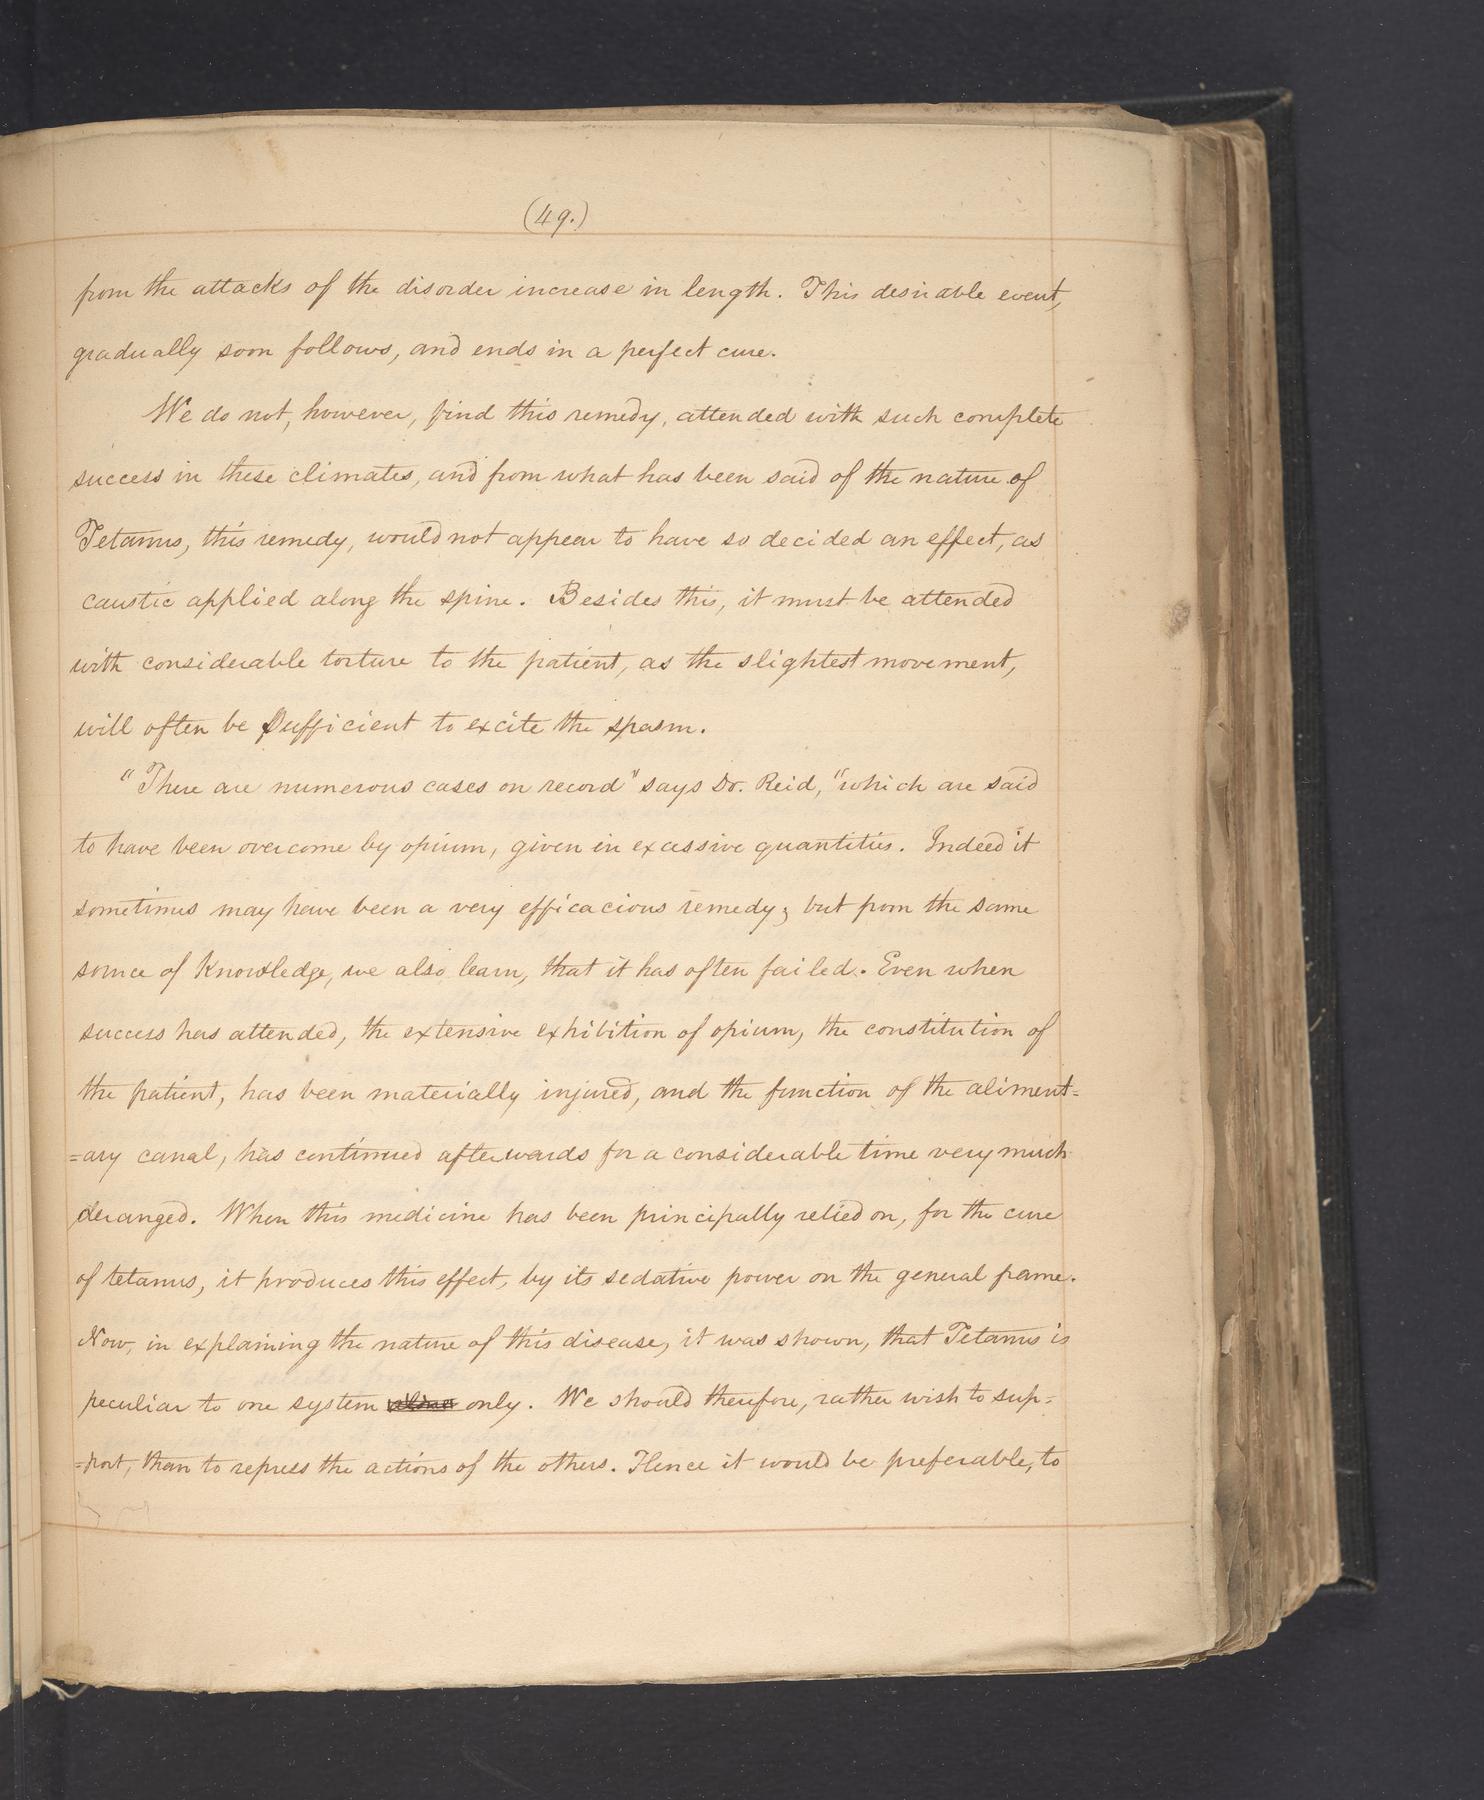 (49.)
from the attacks of the disorder increase in length. This desirable event,
gradually soon follows, and ends in a perfect cure.
We do not, however, find this remedy, attended with such complete
success in these climates, and from what has been said of the nature of
Tetanus, this remedy, would not appear to have so decided an effect, as
caustic applied along the spine. Besides this, it must be attended
with considerable torture to the patient, as the slightest movement,
will often be sufficient to excite the spasm.
"There are numerous cases on record" says Dr. Reid, "which are said
to have been overcome by opium, given in excessive quantities. Indeed it
sometimes may have been a very efficacious remedy; but from the same
source of Knowledge, we also learn, that it has often failed. Even when
success has attended, the extensive exhibition of opium, the constitution of
the patient, has been materially injured, and the function of the aliment=
=ary canal, has continued afterwards for a considerable time very much
deranged. When this medicine has been principally relied on, for the cure
of tetanus, it produces this effect, by its sedative power on the general frame.
Now, in explaining the nature of this disease, it was shown, that Tetanus is
peculiar to one system only. We should therefore, rather wish to sup=
=port, than to repress the actions of the others. Hence it would be preferable, to